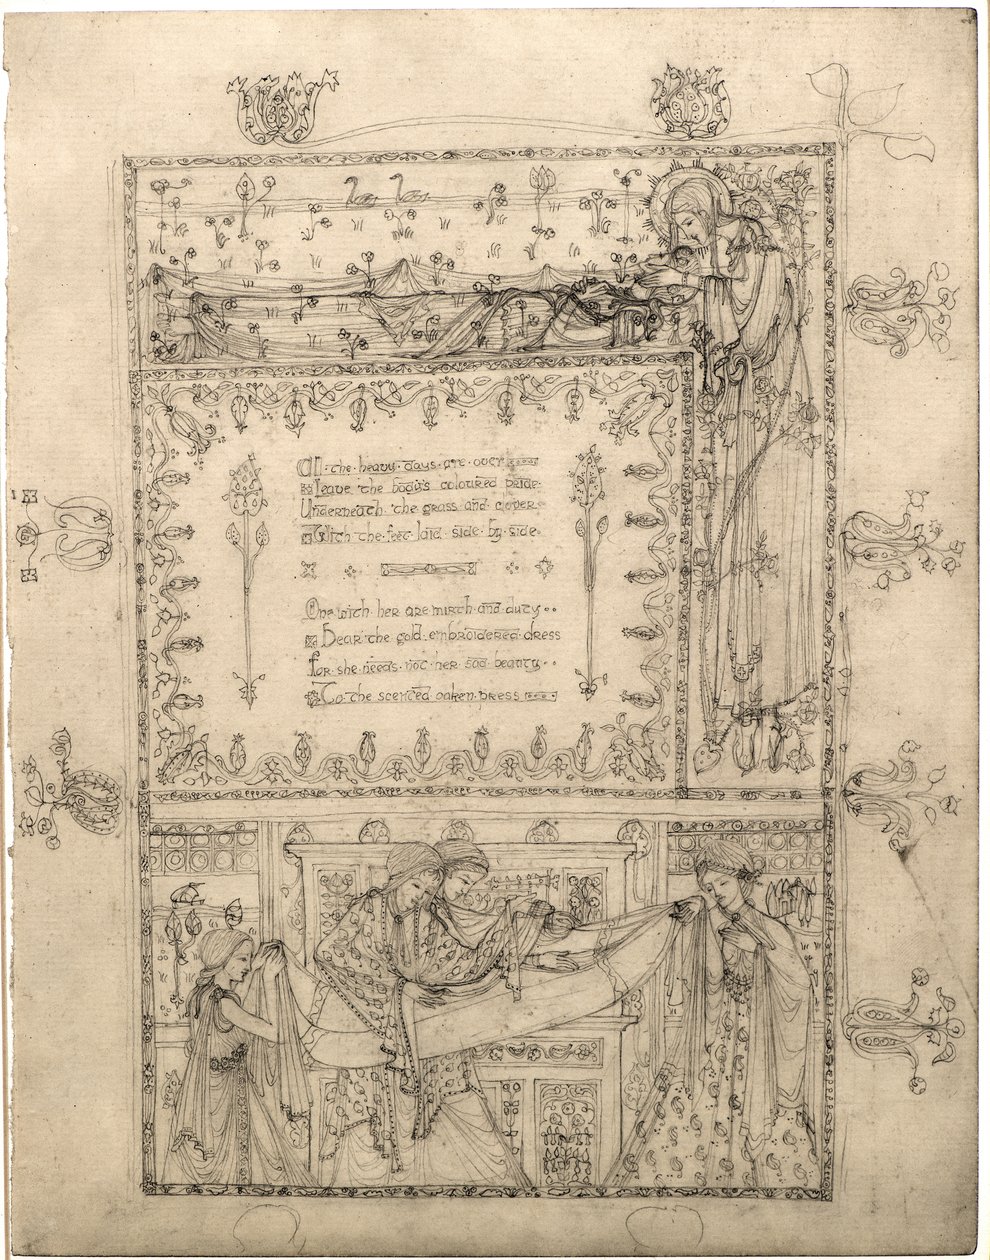 All·the·heavy·days·are·over
Leave the body's coloured pride·
Underneath·the grass and clover·
With·the·feet laid side·by·side·
One with·her are mirth·and·duty··
Bear·the gold·embroidered·dress
for·she·needs·not·her·sad·beauty··
To·the scented oaken·press